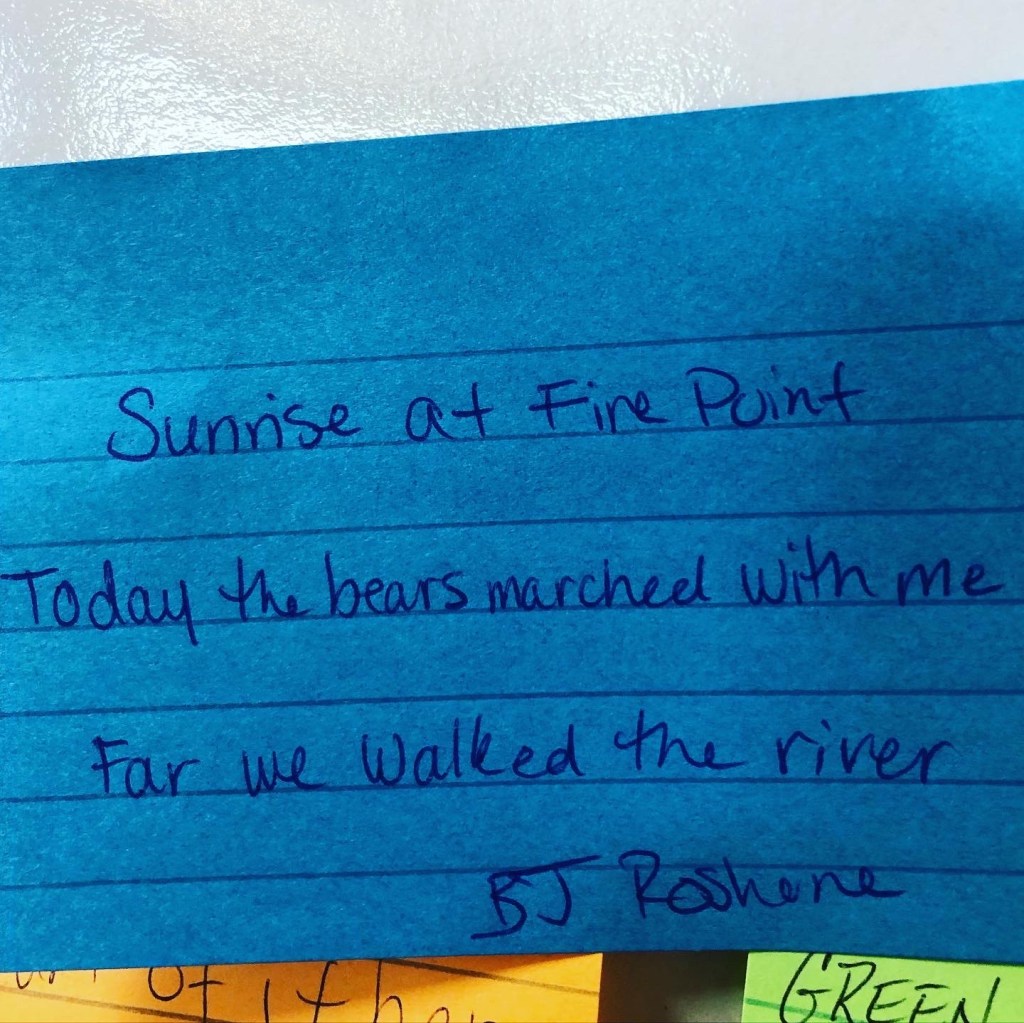 Sunrise at Fire Point
Today the bears marched with me
Far we walked the river
BJ Roshene
of it
GREEN